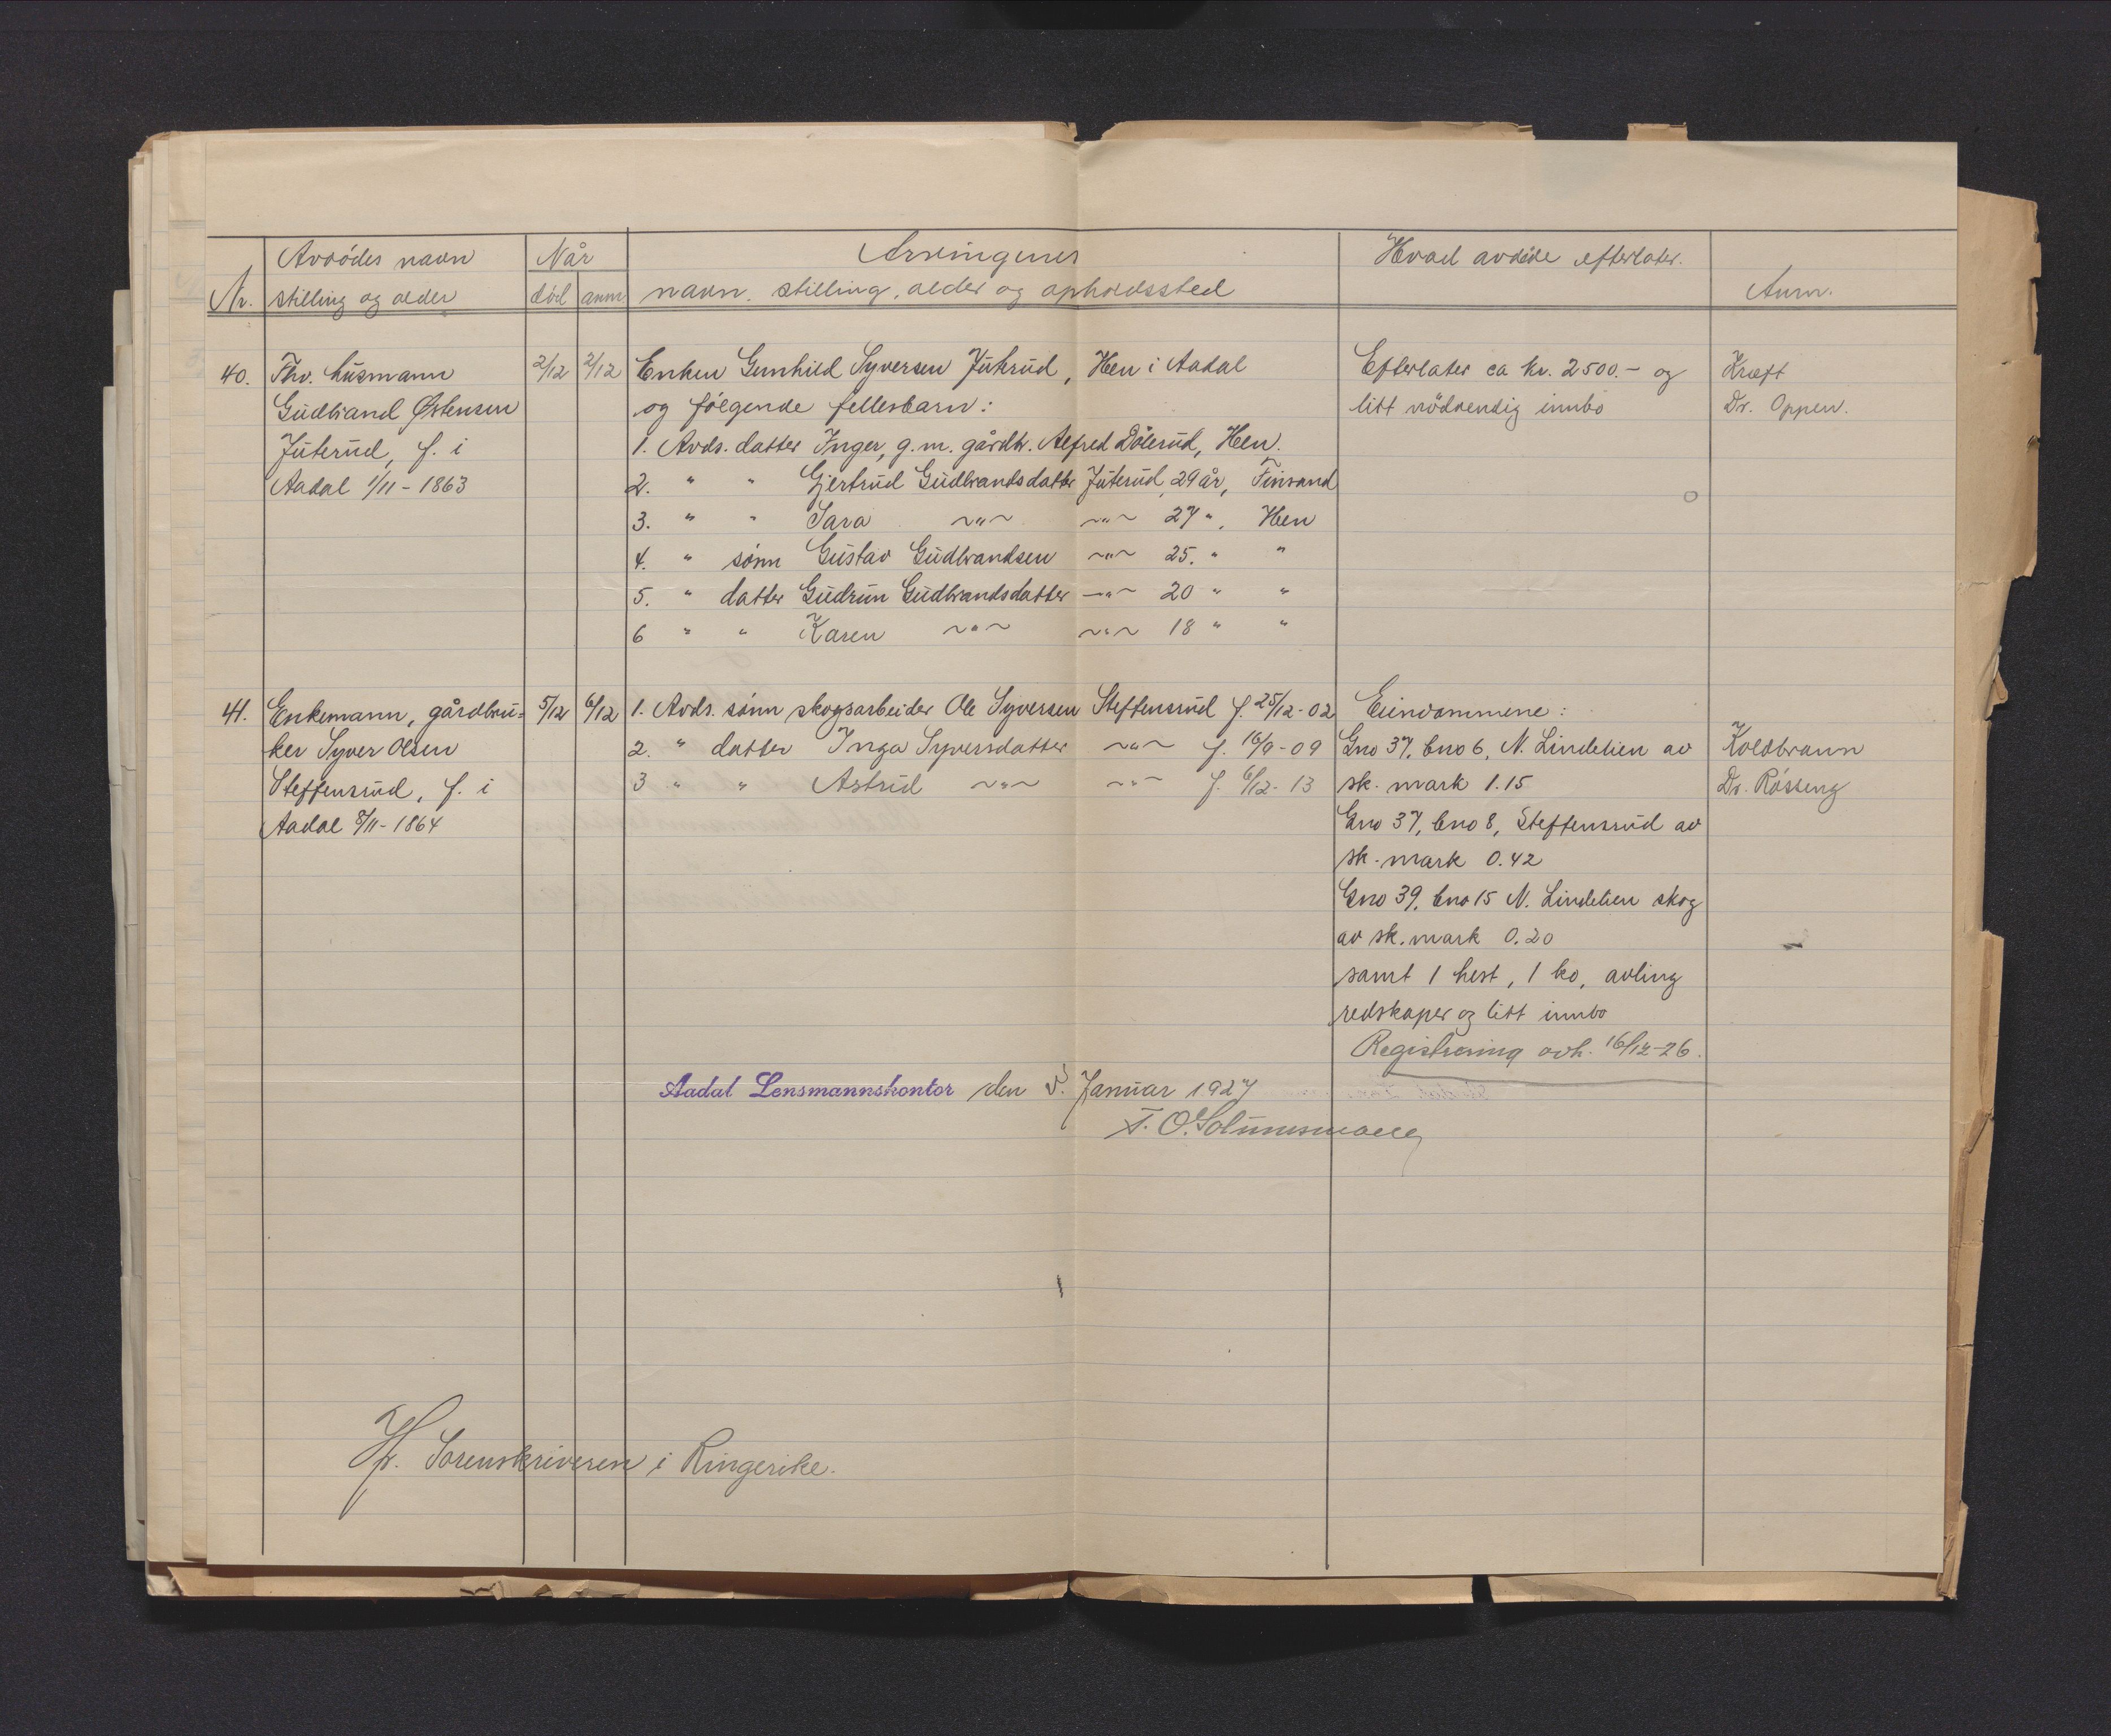 Avdødes navn Når Arvingenes Hvad avdøde efterlater.
Nr. stilling og alder død anm navn, stilling, alder og opholdssted Anm.
40. Fhv. husmann 2/12 2/12 Enken Gunhild Syversen Juterud, Hen i Aadal Efterlater ca kr. 2500.- og Kræft
Gudbrand Østensen og følgende fellesbarn: litt nødvendig innbo Dr. Oppen.
Juterud, f. i 1. Avds. datter Inger, g.m. gårdbr. Alfred Dølerud, Hen.
Aadal 1/11-1863 2. " " Gjertrud Gudbrandsdatter Juterud, 29 år, Finsand
3. " " Sara ~"~ ~"~ 27 ", Hen
4. " sønn Gustav Gudbrandsen ~"~ 25. " "
5. " datter Gudrun Gudbrandsdatter ~"~ 20 " "
6 " " Karen ~"~ ~"~ 18 " "
41. Enkemann, gårdbru= 5/12 6/12 1. Avds. sønn skogsarbeider Ole Syversen Steffensrud f. 25/12-02 Eiendommene:
ker Syver Olsen 2. " datter Inga Syversdatter ~"~ f. 16/9-09 Gno 37, bno 6, N. Lindelien av Koldbrann
Steffensrud, f. i 3 " " Astrid ~"~ ~"~ f. 6/12-13 sk. mark 1.15 Dr. Røsseng
Aadal 8/11-1864 Gno 37, bno 8, Steffensrud av
sk. mark 0.42
Gno 39, bno 15 N. Lindelien skog
av sk. mark 0.20
samt 1 hest, 1 ko, avling
redskaper og litt innbo
Registrering avh. 16/12-26.
Aadal Lensmannskontor den 3. Januar 1927
Hr. Sorenskriveren i Ringerike.